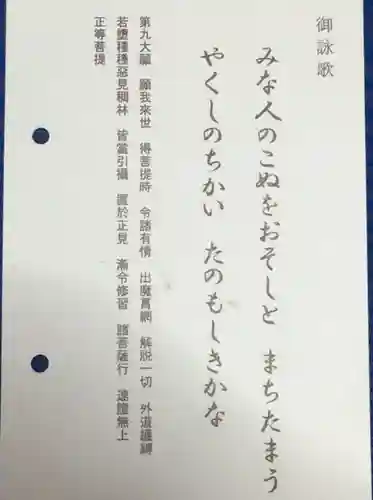 御詠歌
みな人のこぬをおそしと まちたまう
やくしのちかい たのもしきかな
第九大願 願我來世 得菩提時 令諸有情 出魔罥網 解脱一切 外道纏縛
若墮種種惡見稠林 皆當引攝 置於正見 漸令修習 諸菩薩行 速證無上
正等菩提